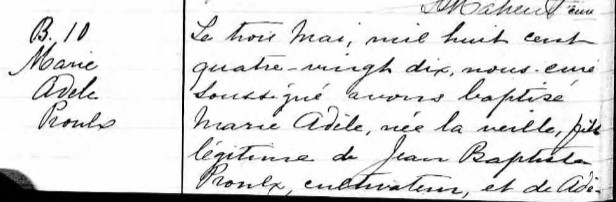 B. 10
Marie
Adèle
Proulx
Le trois Mai, mil huit cent
quatre-vingt dix, nous curé
soussigné avons baptisé
Marie Adèle, née la veille, fille
légitime de Jean Baptiste
Proulx, cultivateur, et de Adè-